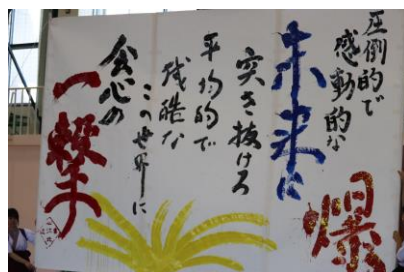 圧倒的で
感動的な
未来に
突き抜けろ
平均的で
残酷な
この世界に
会心の
一撃を
爆